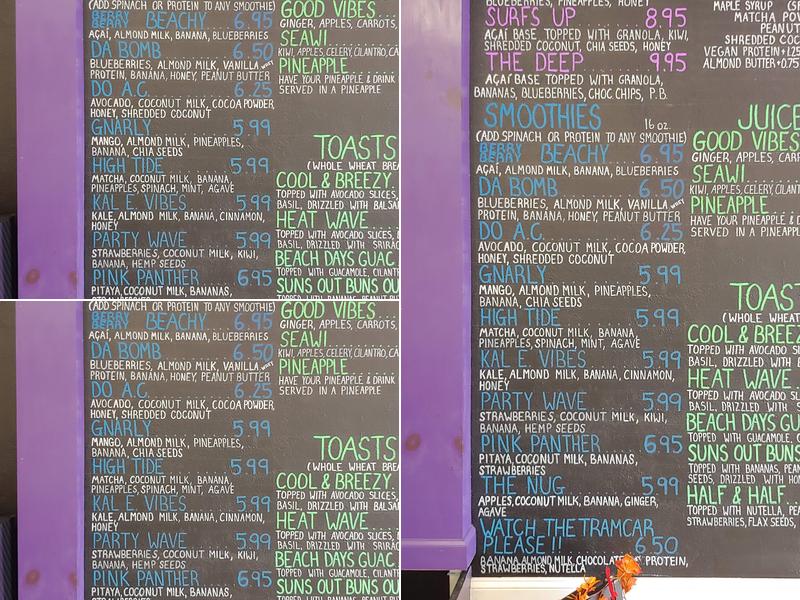 (ADD SPINACH OR PROTEIN TO ANY SMOOTHIE)
BERRY BERRY BEACHY 6.95
AÇAÍ, ALMOND MILK, BANANA, BLUEBERRIES
DA BOMB 6.50
BLUEBERRIES, ALMOND MILK, VANILLA WHEY
PROTEIN, BANANA, HONEY, PEANUT BUTTER
DO A.C. 6.25
AVOCADO, COCONUT MILK, COCOA POWDER,
HONEY, SHREDDED COCONUT
GNARLY 5.99
MANGO, ALMOND MILK, PINEAPPLES,
BANANA, CHIA SEEDS
HIGH TIDE 5.99
MATCHA, COCONUT MILK, BANANA,
PINEAPPLES, SPINACH, MINT, AGAVE
KAL E. VIBES 5.99
KALE, ALMOND MILK, BANANA, CINNAMON,
HONEY
PARTY WAVE 5.99
STRAWBERRIES, COCONUT MILK, KIWI,
BANANA, HEMP SEEDS
PINK PANTHER 6.95
PITAYA, COCONUT MILK, BANANAS,
GOOD VIBES
GINGER, APPLES, CARROTS,
SEAWI
KIWI, APPLES, CELERY, CILANTRO, CA
PINEAPPLE
HAVE YOUR PINEAPPLE & DRINK
SERVED IN A PINEAPPLE
TOASTS
(WHOLE WHEAT BREA
COOL & BREEZY
TOPPED WITH AVOCADO SLICES,
BASIL, DRIZZLED WITH BALSA
HEAT WAVE
TOPPED WITH AVOCADO SLICES, B
BASIL, DRIZZLED WITH SRIRAC
BEACH DAYS GUAC.
TOPPED WITH GUACAMOLE, CILANT
SUNS OUT BUNS OU
(ADD SPINACH OR PROTEIN TO ANY SMOOTHIE)
BERRY BERRY BEACHY 6.95
AÇAÍ, ALMOND MILK, BANANA, BLUEBERRIES
DA BOMB 6.50
BLUEBERRIES, ALMOND MILK, VANILLA WHEY
PROTEIN, BANANA, HONEY, PEANUT BUTTER
DO A.C. 6.25
AVOCADO, COCONUT MILK, COCOA POWDER,
HONEY, SHREDDED COCONUT
GNARLY 5.99
MANGO, ALMOND MILK, PINEAPPLES,
BANANA, CHIA SEEDS
HIGH TIDE 5.99
MATCHA, COCONUT MILK, BANANA,
PINEAPPLES, SPINACH, MINT, AGAVE
KAL E. VIBES 5.99
KALE, ALMOND MILK, BANANA, CINNAMON,
HONEY
PARTY WAVE 5.99
STRAWBERRIES, COCONUT MILK, KIWI,
BANANA, HEMP SEEDS
PINK PANTHER 6.95
PITAYA, COCONUT MILK, BANANAS,
GOOD VIBES
GINGER, APPLES, CARROTS,
SEAWI
KIWI, APPLES, CELERY, CILANTRO, CA
PINEAPPLE
HAVE YOUR PINEAPPLE & DRINK
SERVED IN A PINEAPPLE
TOASTS
(WHOLE WHEAT BREA
COOL & BREEZY
TOPPED WITH AVOCADO SLICES,
BASIL, DRIZZLED WITH BALSA
HEAT WAVE
TOPPED WITH AVOCADO SLICES, B
BASIL, DRIZZLED WITH SRIRAC
BEACH DAYS GUAC.
TOPPED WITH GUACAMOLE, CILANT
SUNS OUT BUNS OU
BLUEBERRIES, PINEAPPLES, HONEY
SURFS UP 8.95
AÇAÍ BASE TOPPED WITH GRANOLA, KIWI,
SHREDDED COCONUT, CHIA SEEDS, HONEY
THE DEEP 9.95
AÇAÍ BASE TOPPED WITH GRANOLA,
BANANAS, BLUEBERRIES, CHOC CHIPS, P.B.
SMOOTHIES 16 oz.
(ADD SPINACH OR PROTEIN TO ANY SMOOTHIE)
BERRY BERRY BEACHY 6.95
AÇAÍ, ALMOND MILK, BANANA, BLUEBERRIES
DA BOMB 6.50
BLUEBERRIES, ALMOND MILK, VANILLA WHEY
PROTEIN, BANANA, HONEY, PEANUT BUTTER
DO A.C. 6.25
AVOCADO, COCONUT MILK, COCOA POWDER,
HONEY, SHREDDED COCONUT
GNARLY 5.99
MANGO, ALMOND MILK, PINEAPPLES,
BANANA, CHIA SEEDS
HIGH TIDE 5.99
MATCHA, COCONUT MILK, BANANA,
PINEAPPLES, SPINACH, MINT, AGAVE
KAL E. VIBES 5.99
KALE, ALMOND MILK, BANANA, CINNAMON,
HONEY
PARTY WAVE 5.99
STRAWBERRIES, COCONUT MILK, KIWI,
BANANA, HEMP SEEDS
PINK PANTHER 6.95
PITAYA, COCONUT MILK, BANANAS,
STRAWBERRIES
THE NUG 5.99
APPLES, COCONUT MILK, BANANA, GINGER,
AGAVE
WATCH THE TRAMCAR
PLEASE!! 6.50
BANANA, ALMOND MILK, CHOCOLATE PROTEIN,
STRAWBERRIES, NUTELLA
MAPLE SYRUP
MATCHA PO
PEANUT
SHREDDED COCO
VEGAN PROTEIN +1.25
ALMOND BUTTER +0.75
JUICE
GOOD VIBES
GINGER, APPLES, CARR
SEAWI
KIWI, APPLES, CELERY, CILAN
PINEAPPLE
HAVE YOUR PINEAPPLE &
SERVED IN A PINEAPPL
TOAST
(WHOLE WHEAT
COOL & BREEZ
TOPPED WITH AVOCADO S
BASIL, DRIZZLED WITH B
HEAT WAVE
TOPPED WITH AVOCADO SL
BASIL, DRIZZLED WITH
BEACH DAYS GU
TOPPED WITH GUACAMOLE, C
SUNS OUT BUNS
TOPPED WITH BANANAS, PEA
SEEDS, DRIZZLED WITH HON
HALF & HALF
TOPPED WITH NUTELLA, PEA
STRAWBERRIES, FLAX SEEDS,